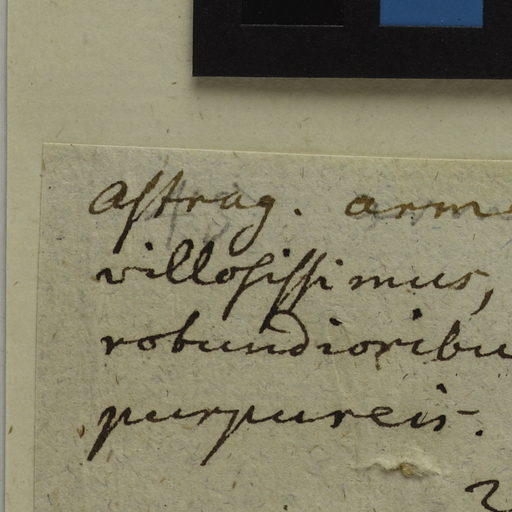 Astrag. arm
villosissimus,
rotundioribu
purpureis.